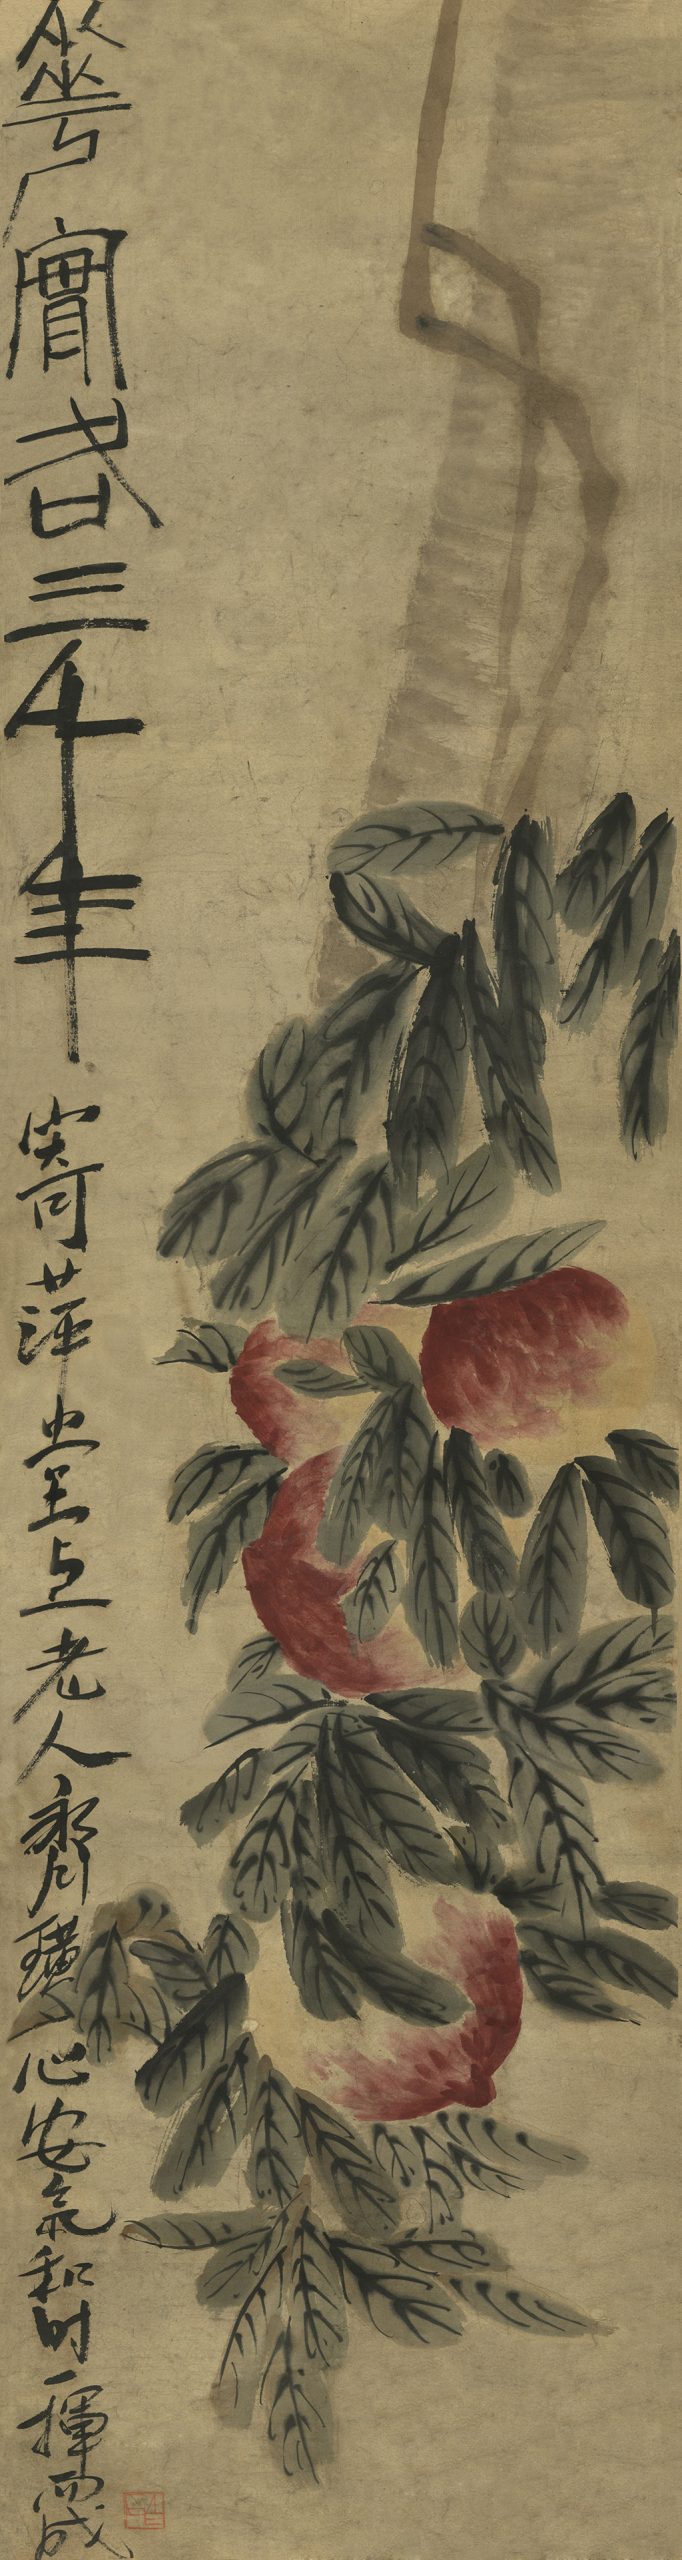 華實各三千年寄萍堂上老人齊璜心安氣和時一揮而成